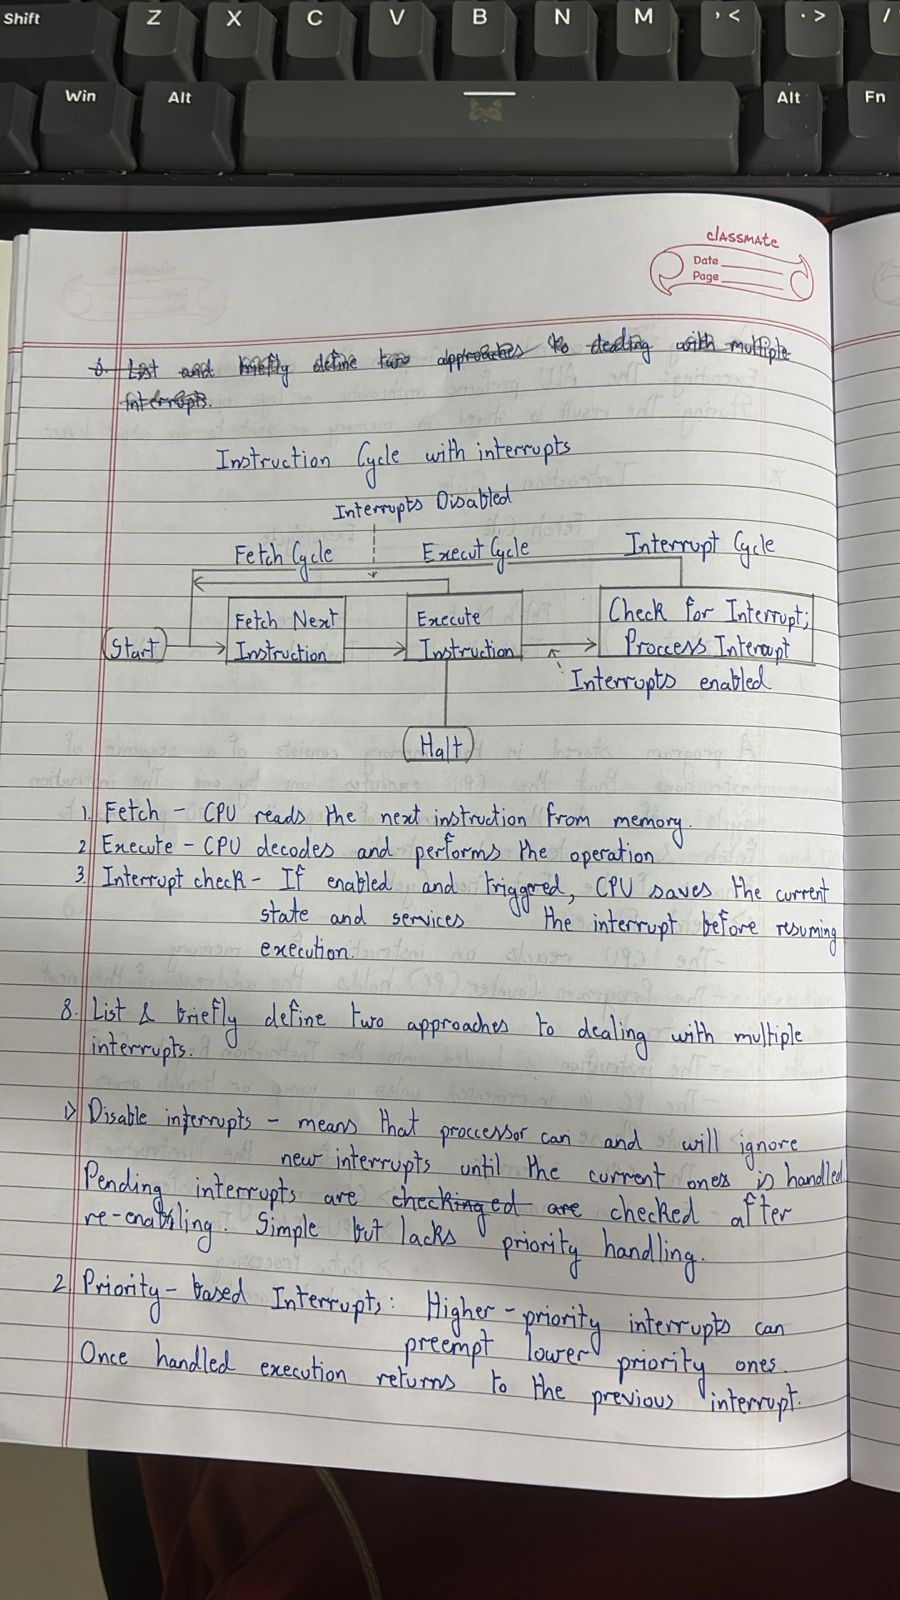 Shift Z X C V B N M , < . > /
Win Alt Alt Fn
classmate
Date
Page
8. List and briefly define two approaches to dealing with multiple
interrupts.
Instruction Cycle with interrupts
Interrupts Disabled
Fetch Cycle Execut Cycle Interrupt Cycle
Start
Fetch Next
Instruction
Execute
Instruction
Check for Interrupt;
Proccess Interrupt
Interrupts enabled
Halt
1. Fetch - CPU reads the next instruction from memory.
2 Execute - CPU decodes and performs the operation
3. Interrupt check - If enabled and triggered, CPU saves the current
state and services the interrupt before resuming
execution.
8. List & briefly define two approaches to dealing with multiple
interrupts.
1) Disable interrupts - means that proccessor can and will ignore
new interrupts until the current ones is handled.
Pending interrupts are checkinged are checked after
re-enabling. Simple but lacks priority handling.
2 Priority-based Interrupts: Higher-priority interrupts can
preempt lower priority ones.
Once handled execution returns to the previous interrupt.